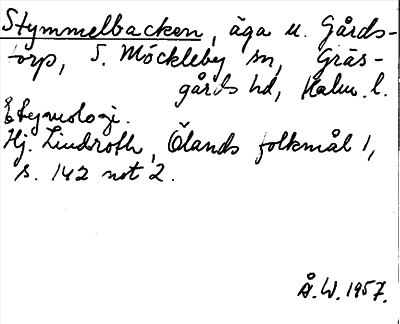 Stymmelbacken, äga u. Gårds-
torp, S. Möckleby sn, Gräs-
gårds hd, Kalm. l.
Etymologi.
Hj. Lindroth, Ölands folkmål 1,
s. 142 not 2.
Å.W. 1957.